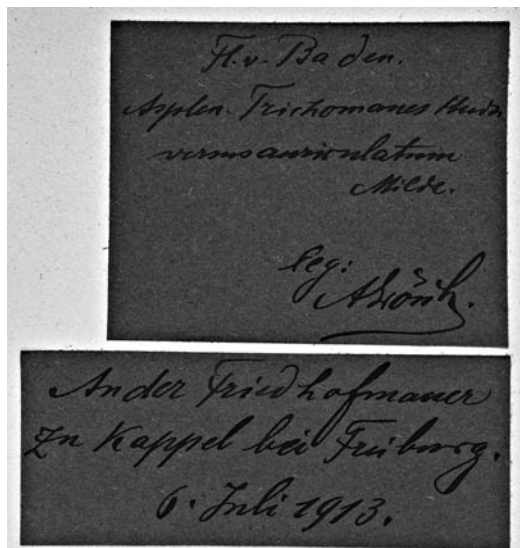 Fl. v. Baden.
Asplen. Trichomanes Huds
versus auriculatum
Milde.
leg:
An der Friedhofmauer
Zu Kappel bei Freiburg.
6. Juli 1913.